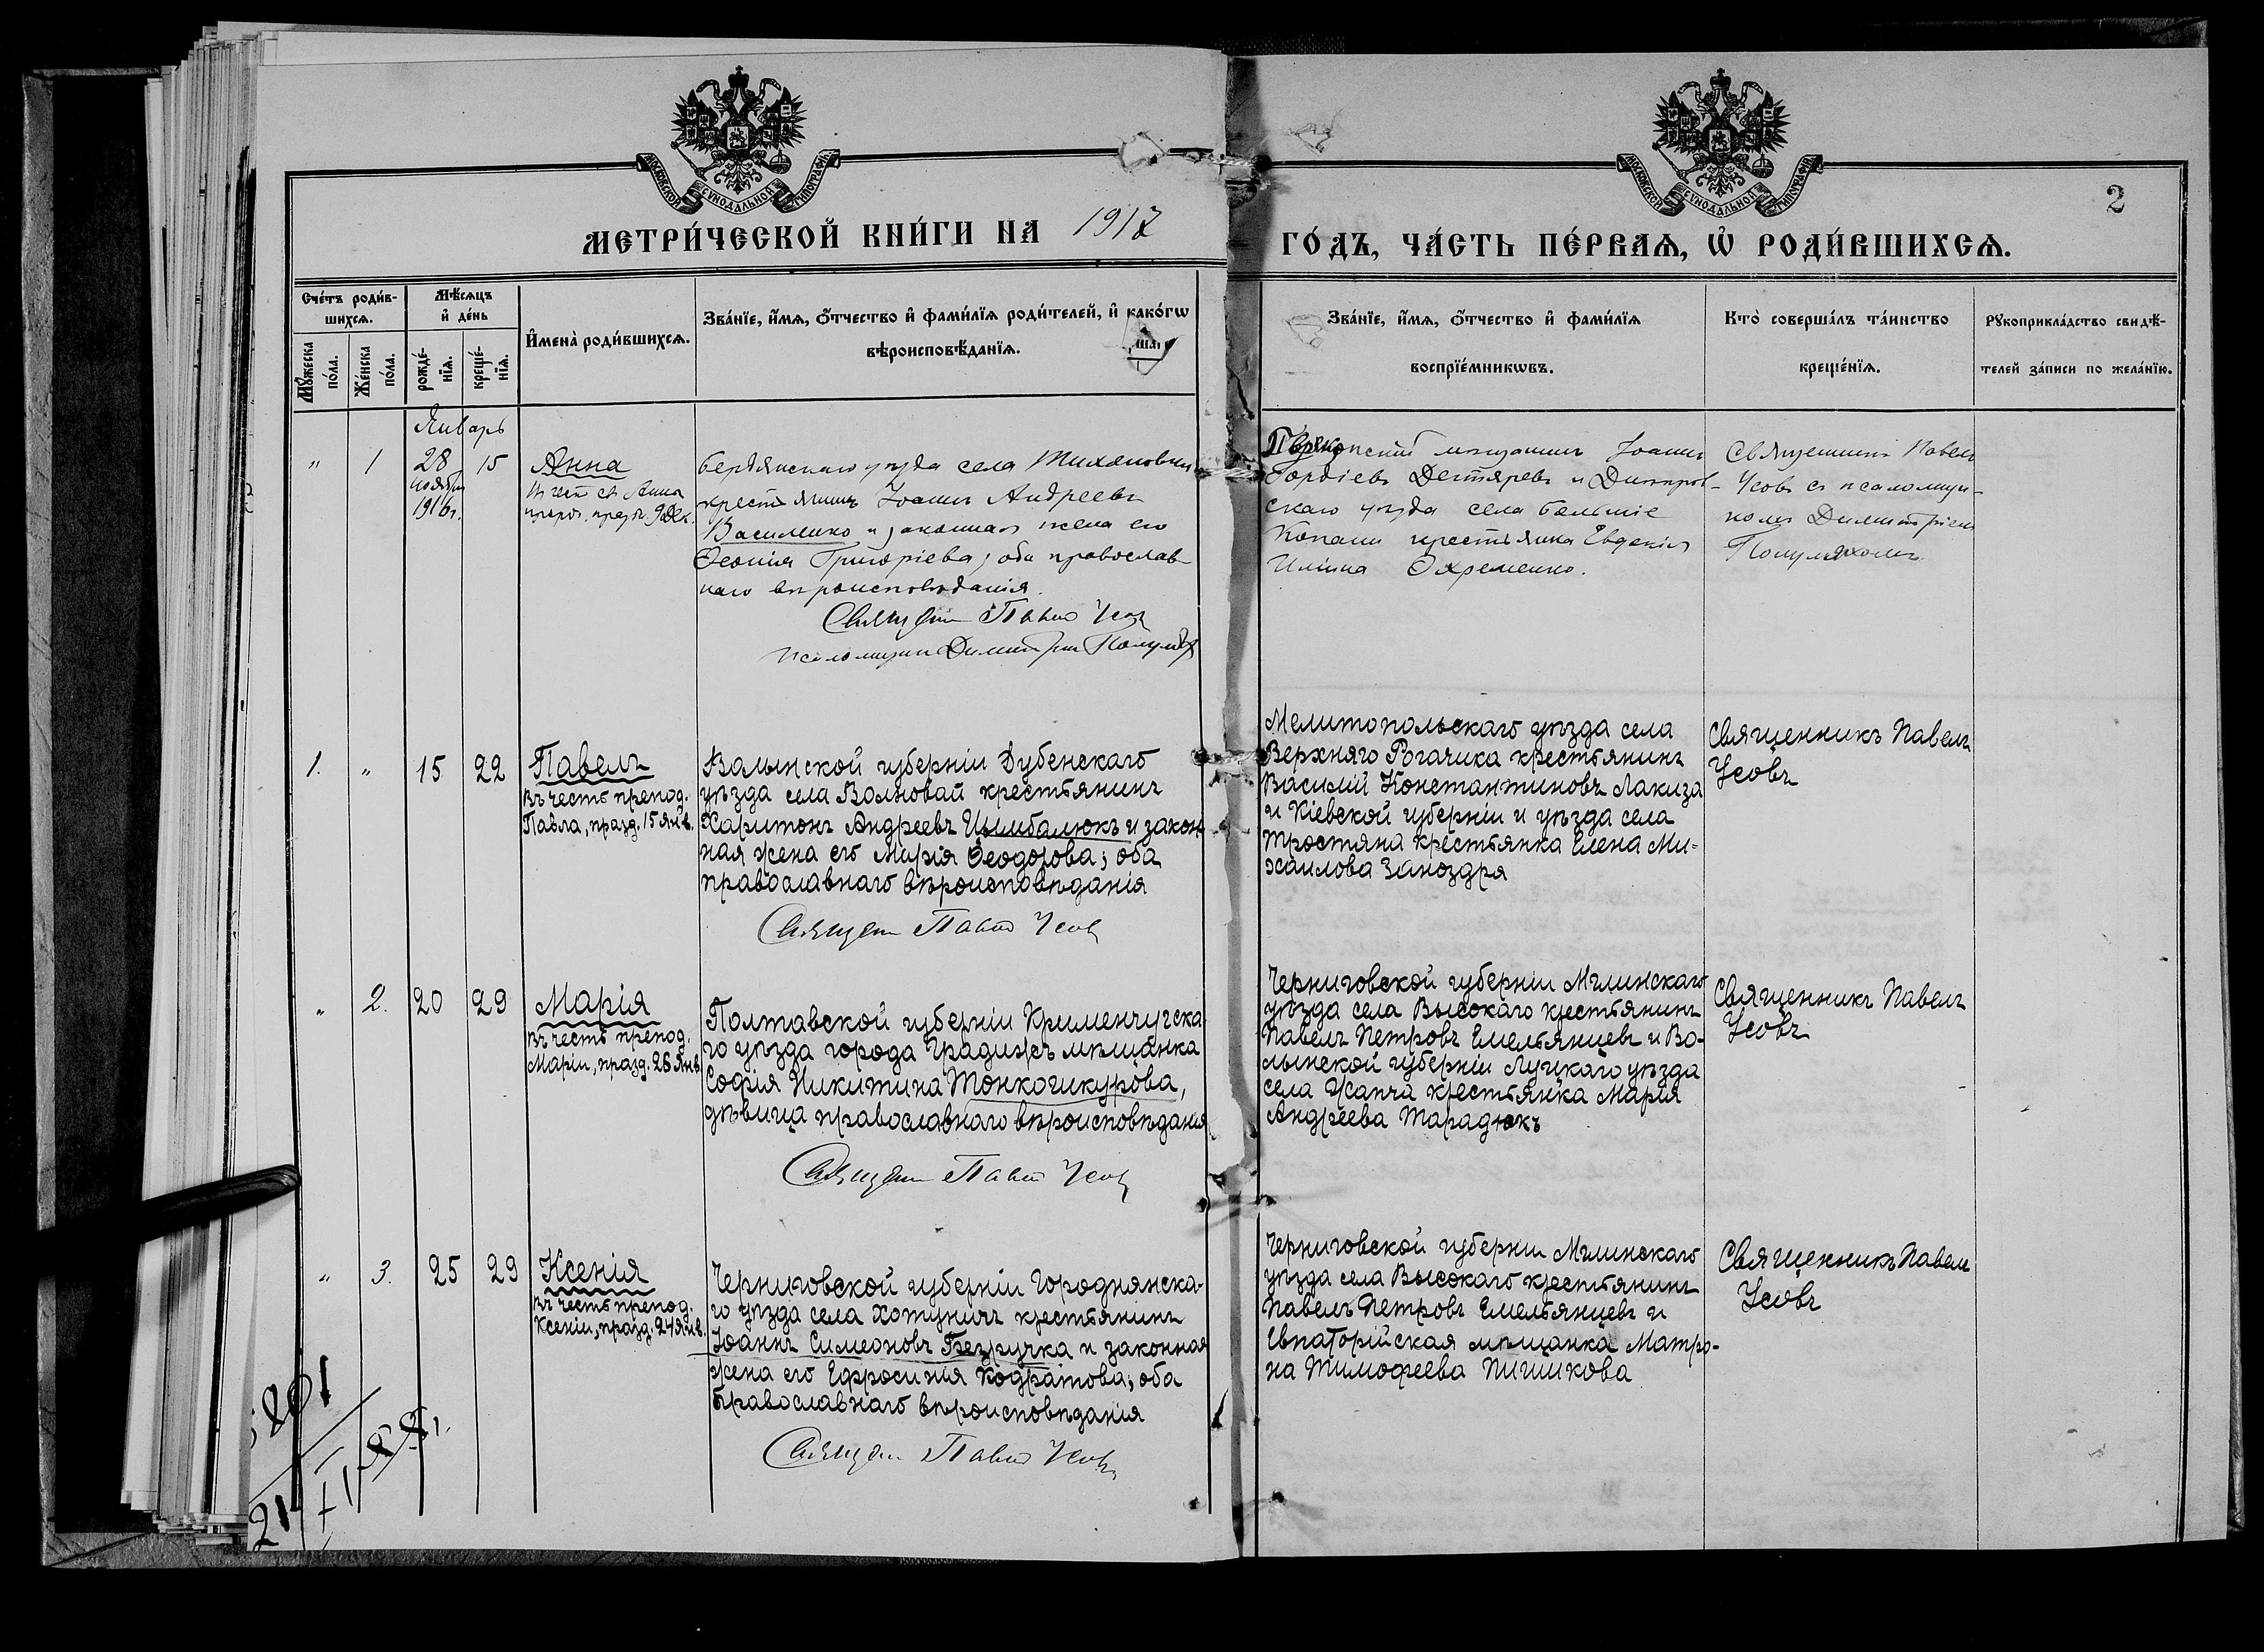 МОСКОВСКОЙ СѴНОДАЛЬНОЙ ТИПОГРАФІИ
МОСКОВСКОЙ СѴНОДАЛЬНОЙ ТИПОГРАФІИ
2
МЕТРИ́ЧЕСКОЙ КНИ́ГИ НА 1917 ГО́ДЪ, ЧА́СТЬ ПЕ́РВАѦ, Ѡ҆ РОДИ́ВШИХСѦ.
Сче́тъ роди́в-
шихсѧ.
Мѣ́сѧцъ
и҆ де́нь
Мꙋ́жеска
по́ла.
Же́нска
по́ла.
рожде́-
нїѧ.
креще́-
нїѧ.
И҆мена̀ роди́вшихсѧ.
Зва́нїе, и҆́мѧ, ѻ҆́тчество и҆ фами́лїѧ роди́телей, и҆ како́гѡ
вѣроисповѣ́данїѧ.
Зва́нїе, и҆́мѧ, ѻ҆́тчество и҆ фами́лїѧ
воспрїе́мникѡвъ.
Кто̀ соверша́лъ та́инство
креще́нїѧ.
Рꙋкоприкла́дство свидѣ́-
телей за́писи по жела́нїю.
Январь
" 1 28 15 Анна
ноября
1916 г.
Въ честь св. Анны
прор. празд. 9 Дек.
Бердянскаго уѣзда села
крестьянинъ Іоаннъ Андреевъ
Василенко и законная жена его
Феонія Григоріева; оба православ-
наго вѣроисповѣданія.
Священ. Павелъ Усовъ
Псаломщикъ Димитрій
Перекопскій мѣщанинъ Іоаннъ
Гордіевъ Дегтяревъ и Днѣпров-
скаго уѣзда села Большіе
Копани крестьянка Евдокія
Ильина Охременко.
Священникъ Павелъ
Усовъ съ псаломщи-
комъ Димитріемъ
1. " 15 22 Павелъ
Въ честь препод.
Павла, празд. 15 Янв.
Волынской губерніи Дубенскаго
уѣзда села Волковай крестьянинъ
Харитонъ Андреевъ Цымбалюкъ и закон-
ная жена его Марія Ѳеодорова; оба
православнаго вѣроисповѣданія
Священ. Павелъ Усовъ
Мелитопольскаго уѣзда села
Верхняго Рогачика крестьянинъ
Василій Константиновъ Лакиза
и Кіевской губерніи и уѣзда села
Тростяна крестьянка Елена Ми-
хаилова Заноздря
Священникъ Павелъ
Усовъ
" 2. 20 29 Марія
Въ честь препод.
Маріи, празд. 26 Янв.
Полтавской губерніи Кременчугска-
го уѣзда города Градижъ мѣщанка
Софія Никитина Тонкошкурова,
дѣвица православнаго вѣроисповѣданія
Священ. Павелъ Усовъ
Черниговской губерніи Мглинскаго
уѣзда села Высокаго крестьянинъ
Павелъ Петровъ Емельянцевъ и Во-
лынской губерніи Луцкаго уѣзда
села крестьянка Марія
Андреева Тарадюкъ
Священникъ Павелъ
Усовъ
" 3. 25 29 Ксенія
Въ честь препод.
Ксеніи, празд. 24 Янв.
Черниговской губерніи Городнянска-
го уѣзда села Хотуничъ крестьянинъ
Іоаннъ Симеоновъ Безручка и законная
жена его Ефросинія Кодратова; оба
православнаго вѣроисповѣданія
Священ. Павелъ Усовъ
Черниговской губерніи Мглинскаго
уѣзда села Высокаго крестьянинъ
Павелъ Петровъ Емельянцевъ и
Евпаторійская мѣщанка Матро-
на Тимофеева Пишикова
Священникъ Павелъ
Усовъ